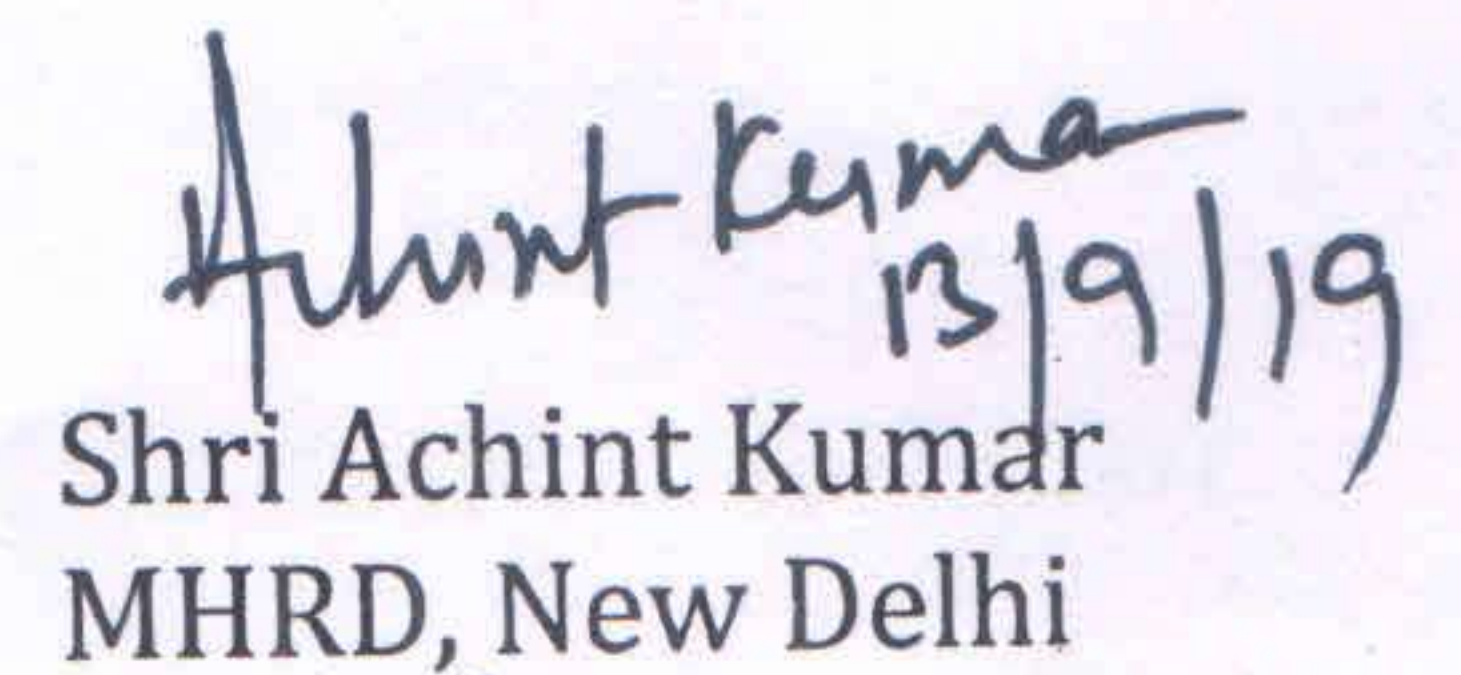 Achint Kumar
13/9/19
Shri Achint Kumar
MHRD, New Delhi